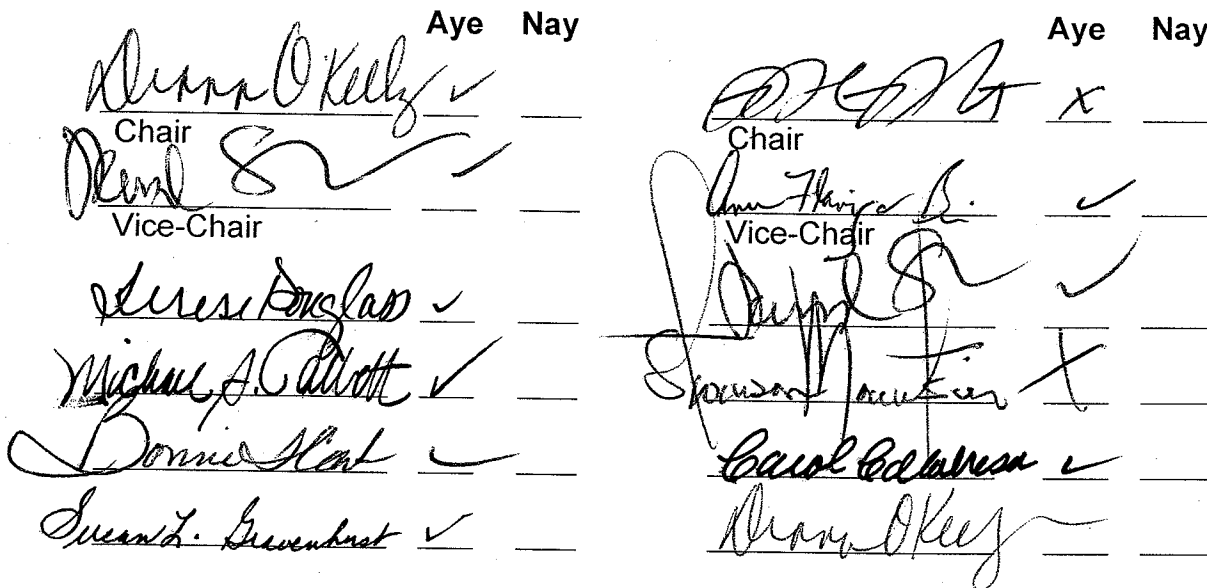 Aye Nay
Diann O'Kelly ✓
Chair
✓
Vice-Chair
Terese Douglass ✓
Michael A. Talbott ✓
Bonnie Hart ✓
Susan L. Gravenhorst ✓
Aye Nay
X
Chair
Ann B. ✓
Vice-Chair
✓
X
Carol Calabresa ✓
Diann O'Kelly